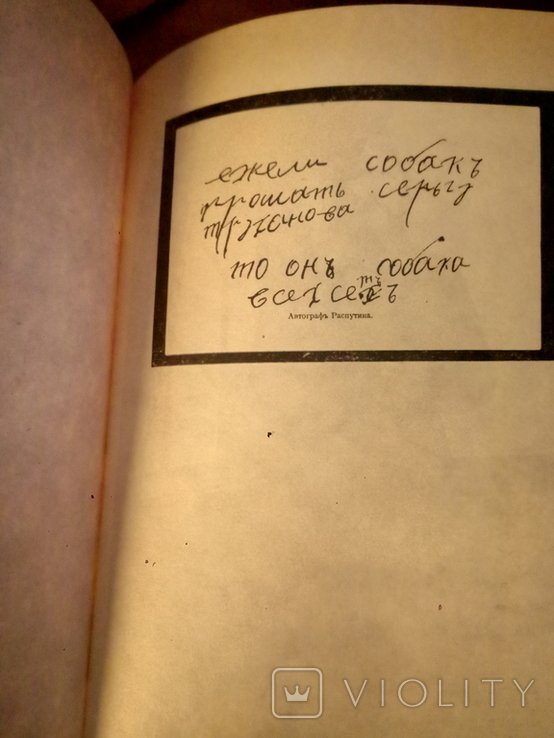 ежели собакъ
прощать серьгу
труханова
то онъ собака
всехъ сестъ
Автографъ Распутина.
VIOLITY